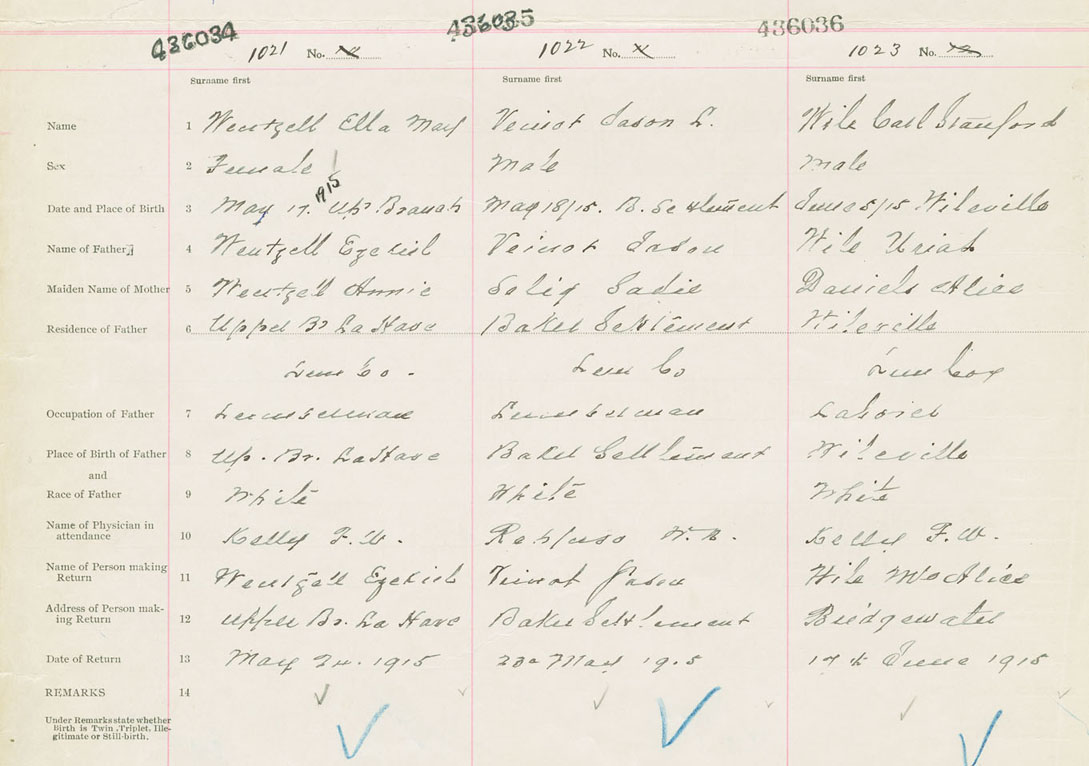 436034 436035 436036
1021 No. 1022 No. x 1023 No.
Surname first Surname first Surname first
Name 1 Wentzell Ella May Veinot Jason L. Wile Carl Stanford
Sex 2 Female Male male
1915
Date and Place of Birth 3 May 17. Up Branch May 18/15. B. Settlement June 5/15 Wileville
Name of Father 4 Wentzell Ezekiel Veinot Jason Wile Uriah
Maiden Name of Mother 5 Wentzell Annie Selig Sadie Daniels Alice
Residence of Father 6 Upper Br LaHave Baker Settlement Wileville
Lun Co. Lun Co Lun Coy
Occupation of Father 7 Lumberman Lumberman Laborer
Place of Birth of Father 8 Up. Br. LaHave Baker Settlement Wileville
and
Race of Father 9 White White White
Name of Physician in attendance 10 Kelly F. W. Rehfuss W. N. Kelly F. W.
Name of Person making Return 11 Wentzell Ezekiel Veinot Jason Wile Mrs Alice
Address of Person mak-ing Return 12 Upper Br. La Have Baker Settlement Bridgewater
Date of Return 13 May 24. 1915 May 1915 17th June 1915
REMARKS 14
Under Remarks state whether
Birth is Twin, Triplet, Ille-
gitimate or Still-birth.